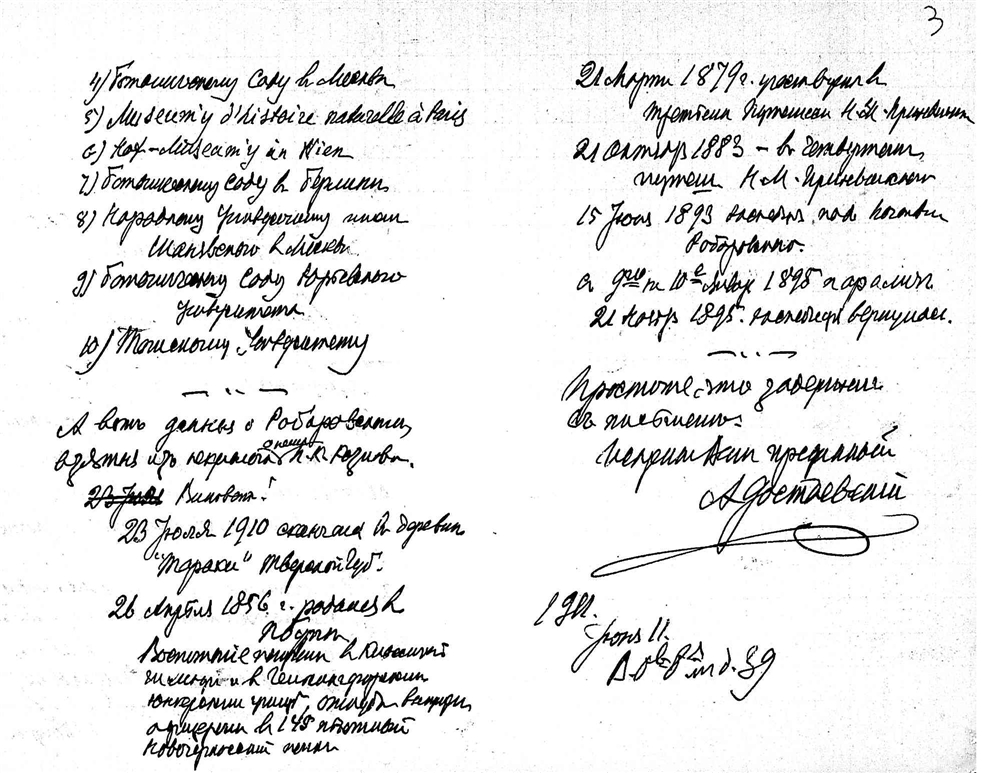 3
4) Ботаническому Саду в Москве
5) Museum'у d'histoire naturelle à Paris
6) Hof-Museum'у in Wien
7) Ботаническому Саду в Берлине
8) Народному Университету имени
Шанявского в Москве
9) Ботаническому Саду Юрьевского
Университета
10) Томскому Университету
А вот данныя о Роборовском,
взятыя из некролога П.К. Козлова.
23 Июля Виноват!
23 Июля 1910 скончался в деревне
"Тараки" Тверской Губ.
26 Апреля 1856 г. родился в
Воспитание получил в классической
гимназии и в Гельсингфорском
юнкерском училище, откуда вышел
офицером в 145 пехотный
Новочеркасский полк
21 Марта 1879 г. участвует в
третьем путешествии Н.М. Пржевальского
21 Октября 1883 – в четвертом
путеш. Н.М. Пржевальского
15 Июня 1893 экспедиция под начальством
Роборовского.
а 9го на 10е Января 1895 паралич
21 Ноября 1895. экспедиция вернулась.
Простите, что задержал
с письмом.
Искренно Вам преданный
А Достоевский
1911.
Июня 11.
В.О. 8 л. д. 39